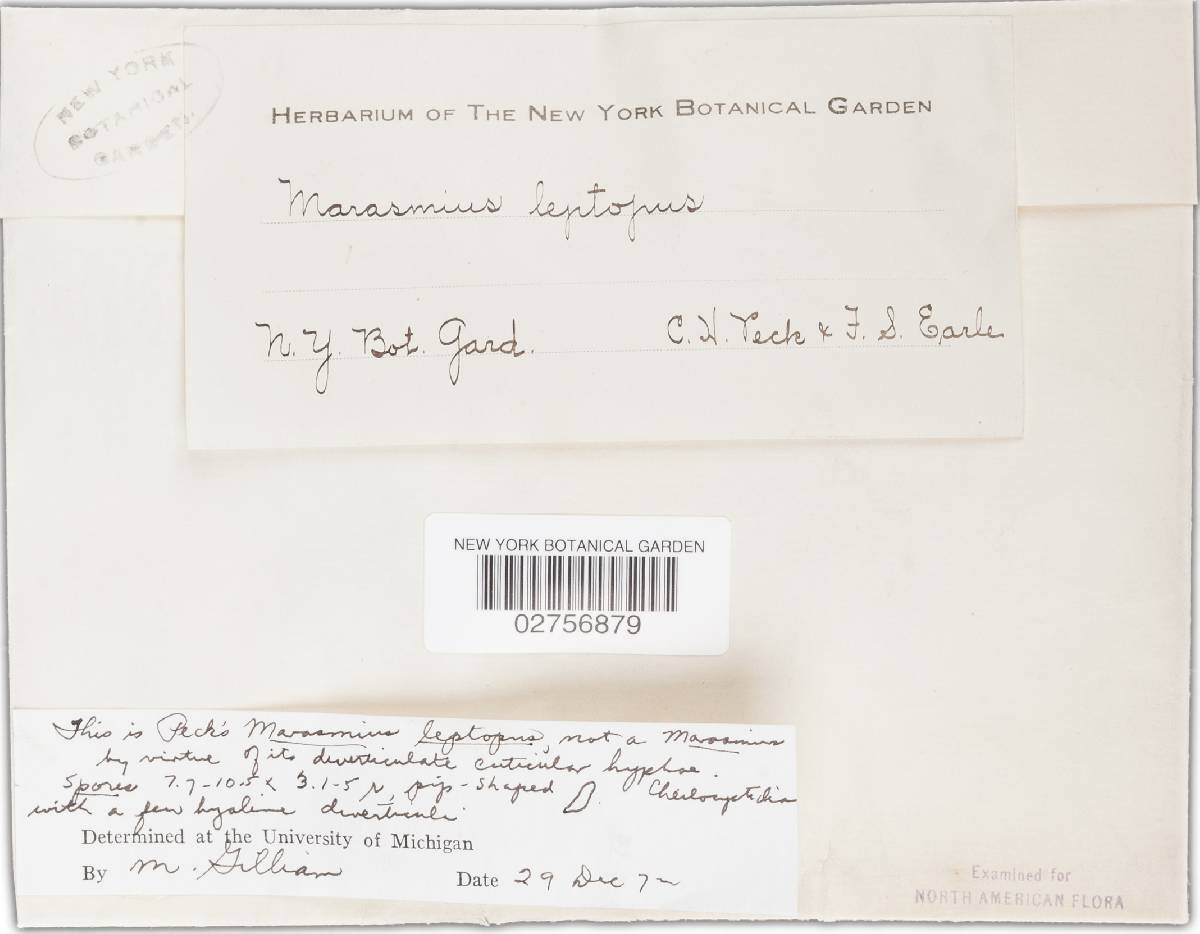 NEW YORK
BOTANICAL
GARDEN.
HERBARIUM OF THE NEW YORK BOTANICAL GARDEN
Marasmius leptopus
N. Y. Bot. Gard.
C. H. Peck & F. S. Earle
NEW YORK BOTANICAL GARDEN
02756879
This is Peck's Marasmius leptopus, not a Marasmius
by virtue of its diverticulate cuticular hyphae.
Spores 7.7-10.5 x 3.1-5 μ, pip-shaped Cheilocystidia
with a few hyaline diverticuli
Determined at the University of Michigan
By M. Gilliam
Date 29 Dec 72
Examined for
NORTH AMERICAN FLORA